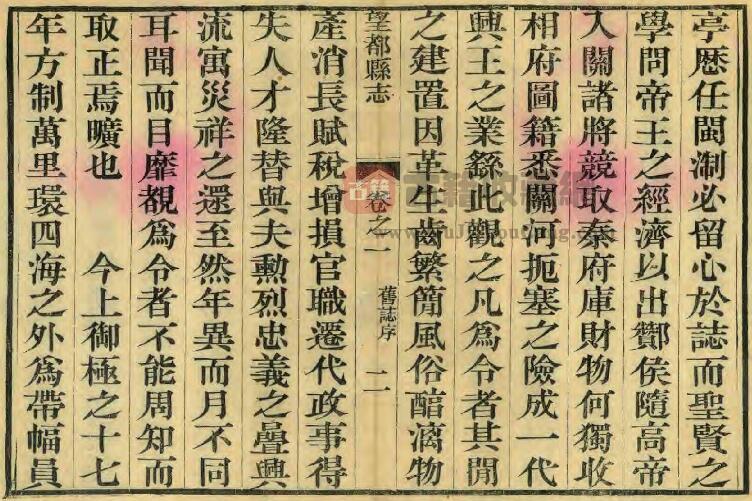 亭歷任閩制必留心於誌而聖賢之
學問帝王之經濟以出酇侯隨高帝
入關諸將競取秦府庫財物何獨收
相府圖籍悉關河扼塞之險成一代
興王之業繇此觀之凡爲令者其閒
之建置因革生齒繁簡風俗醕漓物
望都縣志
卷之一
舊誌序
二
產消長賦稅增損官職遷代政事得
失人才隆替與夫勳烈忠義之疊興
流寓災祥之還至然年異而月不同
耳聞而目靡覩爲令者不能周知而
取正焉曠也 今上御極之十七
年方制萬里環四海之外爲帶幅員